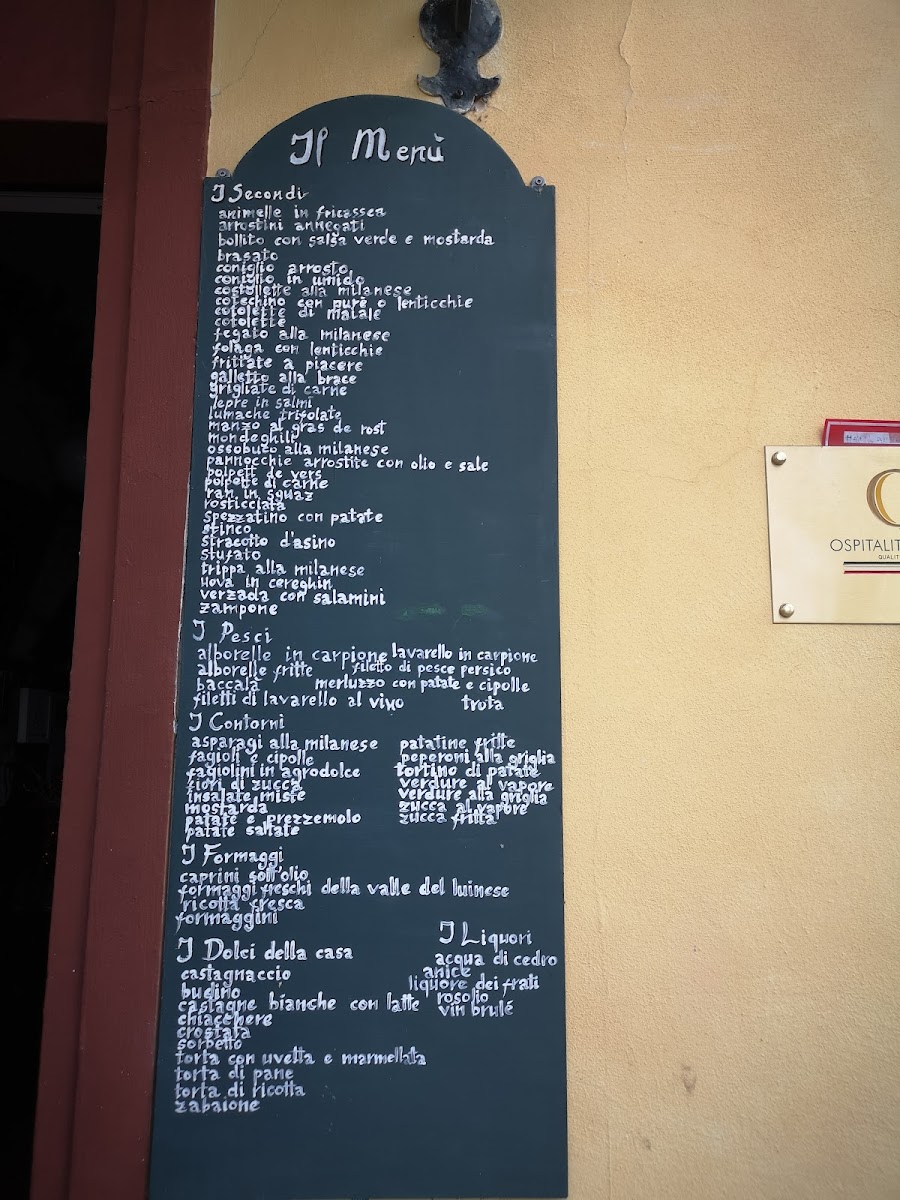 Il Menù
I Secondi
animelle in fricassea
arrostini annegati
bollito con salsa verde e mostarda
brasato
coniglio arrosto
coniglio in umido
costollette alla milanese
cotechino con purè o lenticchie
cotolette di maiale
cotolette
fegato alla milanese
folaga con lenticchie
frittate a piacere
galletto alla brace
grigliate di carne
lepre in salmì
lumache trifolate
manzo al gras de rost
mondeghili
ossobuco alla milanese
pannocchie arrostite con olio e sale
polpett de vers
polpette di carne
ran in sguaz
rosticciata
spezzatino con patate
stinco
stracotto d'asino
stufato
trippa alla milanese
uova in cereghin
verzada con salamini
zampone
I Pesci
alborelle in carpione lavarello in carpione
alborelle fritte filetto di pesce persico
baccalà merluzzo con patate e cipolle
filetti di lavarello al vino trota
I Contorni
asparagi alla milanese patatine fritte
fagioli e cipolle peperoni alla griglia
fagiolini in agrodolce tortino di patate
fiori di zucca verdure al vapore
insalate miste verdure alla griglia
mostarda zucca al vapore
patate e prezzemolo zucca fritta
patate saltate
I Formaggi
caprini sott'olio
formaggi freschi della valle del luinese
ricotta fresca
formaggini
I Dolci della casa
castagnaccio
budino
castagne bianche con latte
chiacchere
crostata
sorbetto
torta con uvetta e marmellata
torta di pane
torta di ricotta
zabaione
I Liquori
acqua di cedro
anice
liquore dei frati
rosolio
vin brulé
OSPITALIT
QUALIT